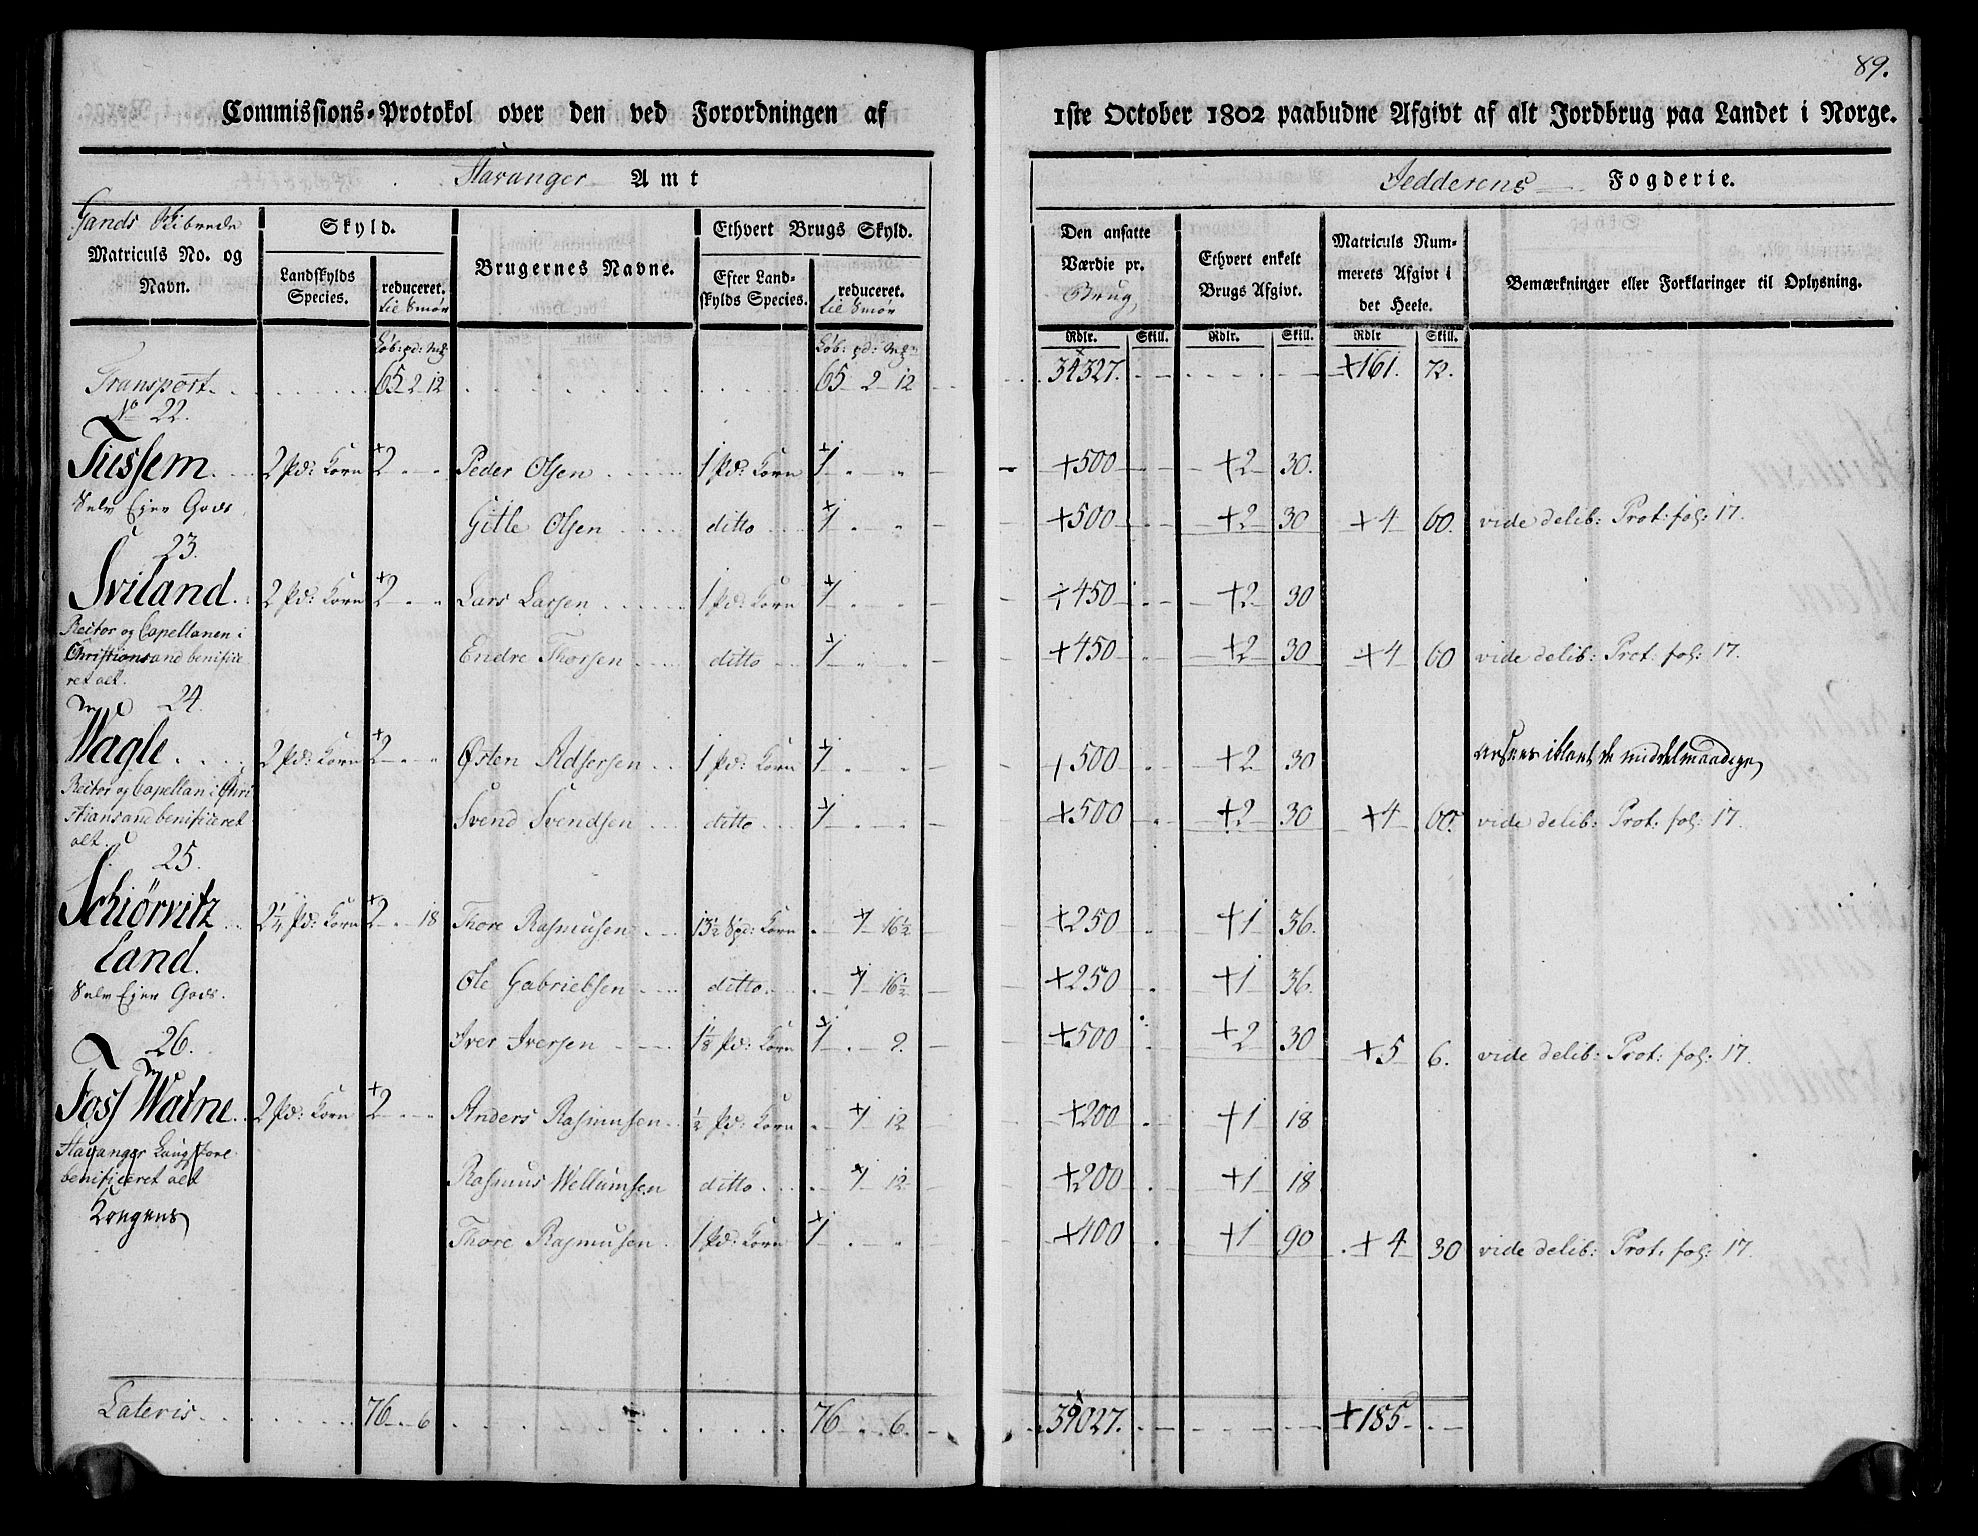 89.
Commissions-Protokol over den ved Forordningen af 1ste October 1802 paabudne Afgivt af alt Jordbrug paa Landet i Norge.
Stavanger Amt Jedderens Fogderie.
Gands Skibrede
Matriculs No. og Navn.
Skyld.
Landskylds Species.
reduceret. til Smør
Brugernes Navne.
Ethvert Brugs Skyld.
Efter Landskylds Species.
reduceret. til Smør
Den ansatte Værdie pr. Brug
Ethvert enkelt Brugs Afgivt.
Matriculs Nummerets Afgivt i det Heele.
Bemærkninger eller Forklaringer til Oplysning.
Rdlr. Skill. Rdlr. Skill. Rdlr Skill.
Transport 65 2 12 65 2 12 34327. +161. 72.
No 22.
Tussem 2 Pd: Korn +2 Peder Olsen 1 Pd: Korn +1 +500 +2 30.
Selv Ejer Gods
Gitle Olsen ditto +1 +500 +2 30 +4 60. vide delib: Prot: fol: 17.
23.
Sviland 2 Pd: Korn +2 Lars Larsen 1 Pd: Korn +1 +450 +2 30
Rector og Capellanen i
Christiansand benifice
ret alt.
Endre Thorsen ditto +1 +450 +2 30 +4 60 vide delib: Prot: fol: 17.
24.
Wagle 2 Pd: Korn +2 Østen Adsersen 1 Pd: Korn +1 +500 +2 30 iblant de middelmaadige
Rector og Capellan i Chri
stiansand benificeret
alt.
Svend Svendsen ditto +1 +500 +2 30 +4 60. vide delib: Prot: fol: 17.
25.
Schiörvitz 2¼ Pd: Korn +2 18 Thore Rasmusen 13½ Spd: Korn +1 16½ +250 +1 36.
Land.
Selv Ejer Gods.
Ole Gabrielsen ditto +1 16½ +250 +1 36.
Iver Iversen 1⅛ Pd: Korn +1 9. +500 +2 30 +5 6. vide delib: Prot: fol: 17.
26.
Foss Watne 2 Pd: Korn +2 Anders Rasmusen ½ Pd: Korn +1 12 +200 +1 18
Stavanger
benificeret alt
Kongens
Rasmus Wellumsen ditto +1 12 +200 +1 18
Thore Rasmusen 1 Pd: Korn +1 +400 +1 90 +4 30 vide delib: Prot. fol: 17.
Lateris 76 6 76 6. 39027. +185